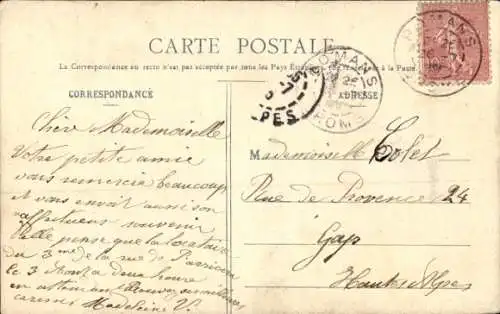 CARTE POSTALE
La Correspondance au recto n'est pas acceptée par tous les Pays Étrangers à la Poste
CORRESPONDANCE
ADRESSE
ROMANS
DROME
ROMANS
PES
Chère Mademoiselle
Votre petite amie
vous remercie beaucoup
et vous envoie aussi son
affectueux souvenir
Elle pense que la locataire
du 3me de la rue de
le 3 heure
en attendant meilleures
caresses Madeleine V.
Mademoiselle Colet
Rue de Provence 24
Gap
Hautes Alpes